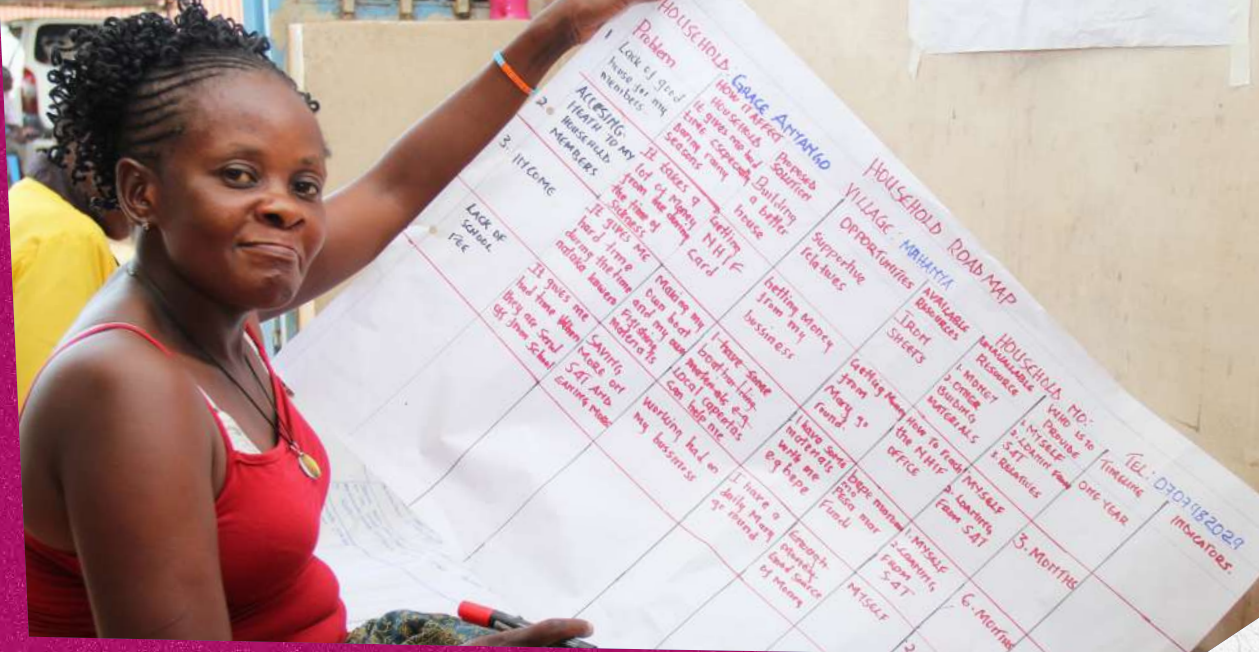 HOUSEHOLD ROAD MAP
HOUSEHOLD: GRACE ANYANGO
VILLAGE: MAHANYA
HOUSEHOLD NO:
TEL: 0707982029
Problem
HOW IT AFFECT
HOUSEHOLD
Proposed
Solution
OPPORTUNITIES
AVAILABLE
RESOURCES
UNAVAILABLE
RESOURCE
WHO IS TO
PROVIDE
TIMELINE
INDICATORS.
1
Lack of good
house for my
members
It gives me bad
time especially
during rainy
seasons
Building
a better
house
Supportive
relatives
IRON
SHEETS
1. MONEY
2. OTHER
BUILDING
MATERIALS
1. MYSELF
2. LOANING FROM
SAT
RELATIVES
ONE YEAR
2.
ACCESING
HEATH TO MY
HOUSEHOLD
MEMBERS
It takes a
lot of money
from me during
the time of
sickness
Getting
NHIF
Card
Getting Money
from my
bussiness
Getting Money
from
Mary go
round
How To Reach
the NHIF
OFFICE
MYSELF
2. LOANING
FROM SAT
3. MONTHS
3. INCOME
It gives me
hard time
during the time
Making my
own boat
and my own
Fishing
materials
I have some
boat making
materials e.g.
Local capentas
can help me
I have some
materials
with me
e.g
1. MYSELF
2. LOANING
FROM
SAT
6. MONTHS
LACK OF
SCHOOL
FEE
It gives me
had time When
they are Send
of from School
SAVING
MORE ON
SAT AND
EANING MORE
Working had on
my bossiness
I have a
daily Mary
go round
Enough
Money
Good source
of Money
MYSELF